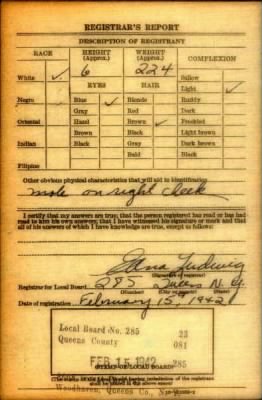 REGISTRAR'S REPORT
DESCRIPTION OF REGISTRANT
RACE HEIGHT (Approx.) WEIGHT (Approx.) COMPLEXION
6 224
White ✓ Sallow
EYES HAIR Light ✓
Negro Blue ✓ Blonde Ruddy
Gray Red Dark
Oriental Hazel Brown ✓ Freckled
Brown Black Light brown
Indian Black Gray Dark brown
Bald Black
Filipino
Other obvious physical characteristics that will aid in identification
mole on right cheek
I certify that my answers are true; that the person registered has read or has had
read to him his own answers; that I have witnessed his signature or mark and that
all of his answers of which I have knowledge are true, except as follows:
Edna Ludwig
(Signature of registrar)
Registrar for Local Board 285 Queens N.Y.
(Number) (City or county) (State)
Date of registration February 15, 1942
Local Board No. 285 23
Queens County 081
FEB 15 1942 285
(STAMP OF LOCAL BOARD)
Woodhaven, Queens Co., New